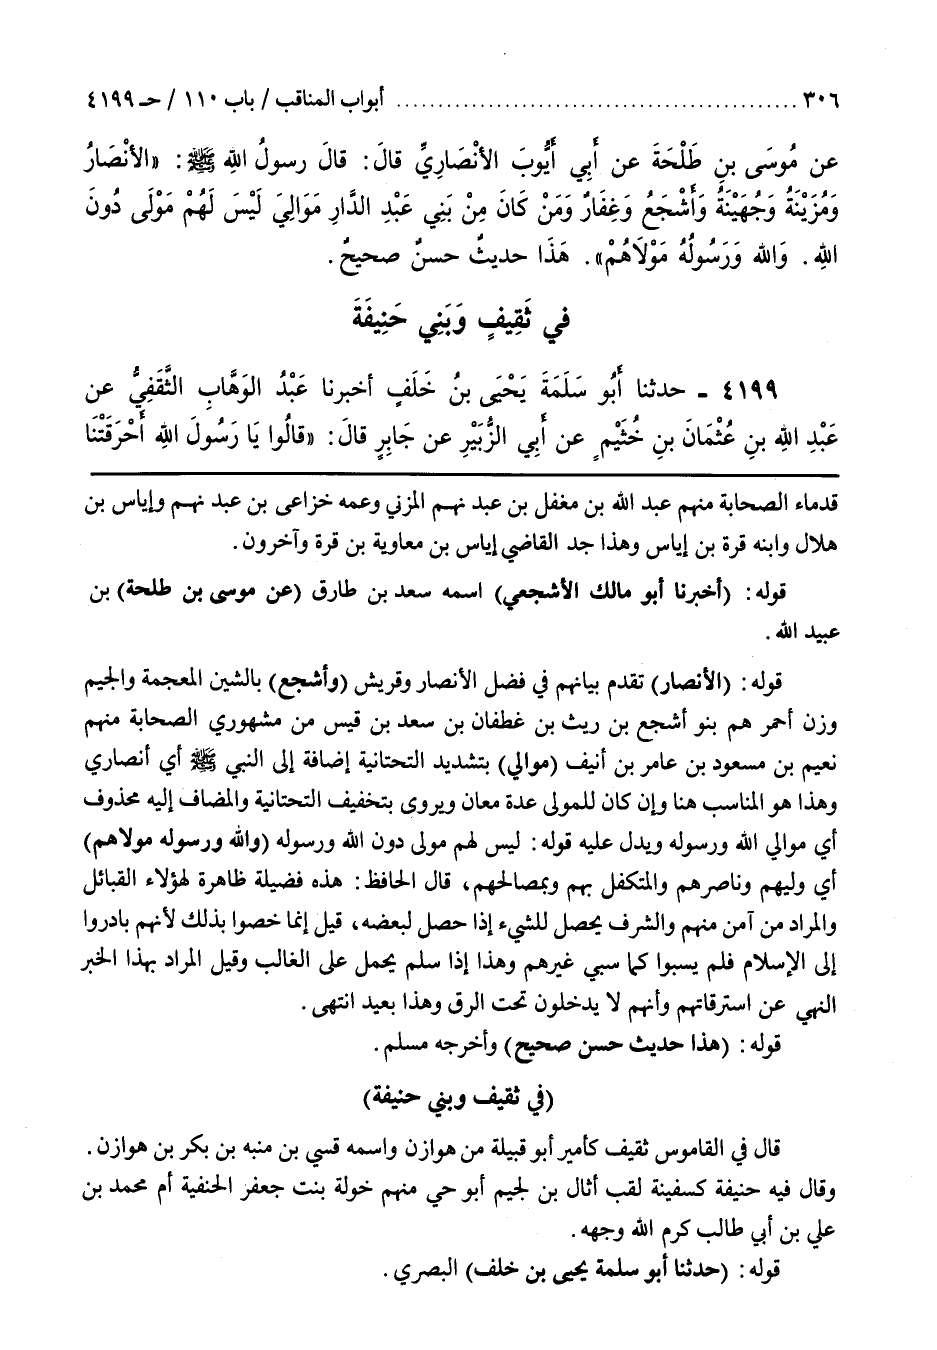 ٣٠٦ ................................................ أبواب المناقب / باب ١١٠ / حـ ٤١٩٩
عن مُوسَى بنِ طَلْحَةَ عن أَبِي أَيُّوبَ الأنْصَارِيِّ قالَ: قالَ رسولُ اللهِ ﷺ: «الأنْصَارُ
وَمُزَيْنَةُ وَجُهَيْنَةُ وَأَشْجَعُ وَغِفَارٌ وَمَنْ كَانَ مِنْ بَنِي عَبْدِ الدَّارِ مَوَالِيَ لَيْسَ لَهُمْ مَوْلَى دُونَ
اللهِ. وَالله وَرَسُولُهُ مَوْلَاهُمْ». هَذَا حديثٌ حسنٌ صحيحٌ.
في ثَقِيفٍ وَبَنِي حَنِيفَةَ
٤١٩٩ ـ حدثنا أَبُو سَلَمَةَ يَحْيَى بنُ خَلَفٍ أخبرنا عَبْدُ الوَهَّابِ الثَّقَفِيُّ عن
عَبْدِ الله بنِ عُثْمَانَ بنِ خُثَيْمٍ عن أَبِي الزُّبَيْرِ عن جَابِرٍ قالَ: «قالُوا يَا رَسُولَ اللهِ أَحْرَقَتْنَا
قدماء الصحابة منهم عبد الله بن مغفل بن عبد نهم المزني وعمه خزاعى بن عبد نهم وإياس بن
هلال وابنه قرة بن إياس وهذا جد القاضي إياس بن معاوية بن قرة وآخرون.
قوله: (أخبرنا أبو مالك الأشجعي) اسمه سعد بن طارق (عن موسى بن طلحة) بن
عبيد الله.
قوله: (الأنصار) تقدم بيانهم في فضل الأنصار وقريش (وأشجع) بالشين المعجمة والجيم
وزن أحمر هم بنو أشجع بن ريث بن غطفان بن سعد بن قيس من مشهوري الصحابة منهم
نعيم بن مسعود بن عامر بن أنيف (موالي) بتشديد التحتانية إضافة إلى النبي ﷺ أي أنصاري
وهذا هو المناسب هنا وإن كان للمولى عدة معان ويروى بتخفيف التحتانية والمضاف إليه محذوف
أي موالي الله ورسوله ويدل عليه قوله: ليس لهم مولى دون الله ورسوله (والله ورسوله مولاهم)
أي وليهم وناصرهم والمتكفل بهم وبمصالحهم، قال الحافظ: هذه فضيلة ظاهرة لهؤلاء القبائل
والمراد من آمن منهم والشرف يحصل للشيء إذا حصل لبعضه، قيل إنما خصوا بذلك لأنهم بادروا
إلى الإسلام فلم يسبوا كما سبي غيرهم وهذا إذا سلم يحمل على الغالب وقيل المراد بهذا الخبر
النهي عن استرقاتهم وأنهم لا يدخلون تحت الرق وهذا بعيد انتهى.
قوله: (هذا حديث حسن صحيح) وأخرجه مسلم.
(في ثقيف وبني حنيفة)
قال في القاموس ثقيف كأمير أبو قبيلة من هوازن واسمه قسي بن منبه بن بكر بن هوازن.
وقال فيه حنيفة كسفينة لقب أثال بن لجيم أبو حي منهم خولة بنت جعفر الحنفية أم محمد بن
علي بن أبي طالب كرم الله وجهه.
قوله: (حدثنا أبو سلمة يحيى بن خلف) البصري.